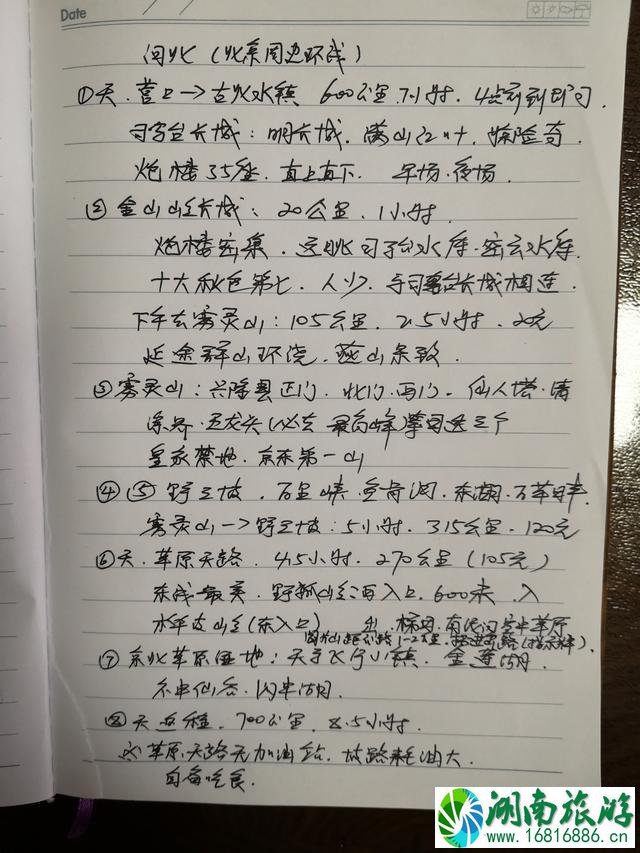 Date
河北（北京周边环线）
①天.营口→古北水镇 600公里.7小时.4点前到即可
司马台长城：明长城.满山红叶.惊险奇.
炮楼35座.直上直下. 早场.夜场.
②金山岭长城：20公里.1小时.
炮楼密集.远眺司马台水库.密云水库.
十大秋色第七.人少.与司马台长城相连.
下午去雾灵山：105公里.2.5小时.20元
延途群山环绕.燕山余致.
③雾灵山：兴隆县正门.北门.西门.仙人塔.清
凉界.五龙头(必去 最高峰
皇家禁地.京东第一山
④⑤野三坡.百里峡.鱼谷洞.东湖.百草畔.
雾灵山→野三坡：5小时.315公里.120元
⑥天.草原天路.4.5小时.270公里(105元)
东线最美.野狐岭(西入口.600米.入
水年支山(东入口)
1-2公里.
⑦京北草原湿地：天子飞行小镇.金莲湖.
仙谷.闪电湖.
⑧天返程.700公里.8.5小时.
草原天路无加油站.坡路耗油大.
自备吃食.
湖南旅游
www.16816886.cn